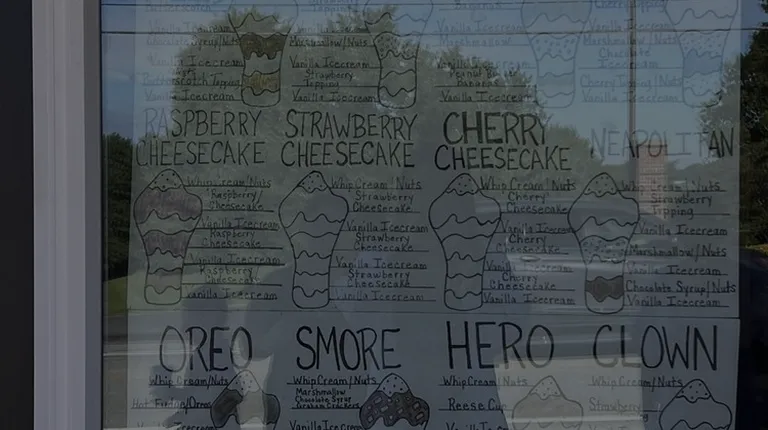 Vanilla Icecream
Chocolate Syrup/Nuts
Vanilla Icecream
Butterscotch Topping
Vanilla Icecream
Marshmallow/Nuts
Vanilla Icecream
Strawberry
Topping
Vanilla Icecream
Vanilla Icecream
Peanut Butter
Bananas
Vanilla Icecream
Marshmallow/Nuts
Chocolate
Vanilla Icecream
Cherry Topping/Nuts
Vanilla Icecream
RASPBERRY
CHEESECAKE
Whip Cream/Nuts
Raspberry/
Cheesecake
Vanilla Icecream
Raspberry
Cheesecake
Vanilla Icecream
Raspberry
Cheesecake
Vanilla Icecream
STRAWBERRY
CHEESECAKE
Whip Cream/Nuts
Strawberry
Cheesecake
Vanilla Icecream
Strawberry
Cheesecake
Vanilla Icecream
Strawberry
Cheesecake
Vanilla Icecream
CHERRY
CHEESECAKE
Whip Cream/Nuts
Cherry
Cheesecake
Vanilla Icecream
Cherry
Cheesecake
Vanilla Icecream
Cherry
Cheesecake
Vanilla Icecream
NEAPOLITAN
Whip Cream/Nuts
Strawberry
Topping
Vanilla Icecream
Marshmallow/Nuts
Vanilla Icecream
Chocolate Syrup/Nuts
Vanilla Icecream
OREO
Whip Cream/Nuts
Hot Fudge/Oreo
Icecream
SMORE
Whip Cream/Nuts
Marshmallow
Chocolate Syrup
Graham Crackers
Vanilla Icecream
HERO
Whip Cream/Nuts
Reese Cup
CLOWN
Whip Cream/Nuts
Strawberry
Vanilla